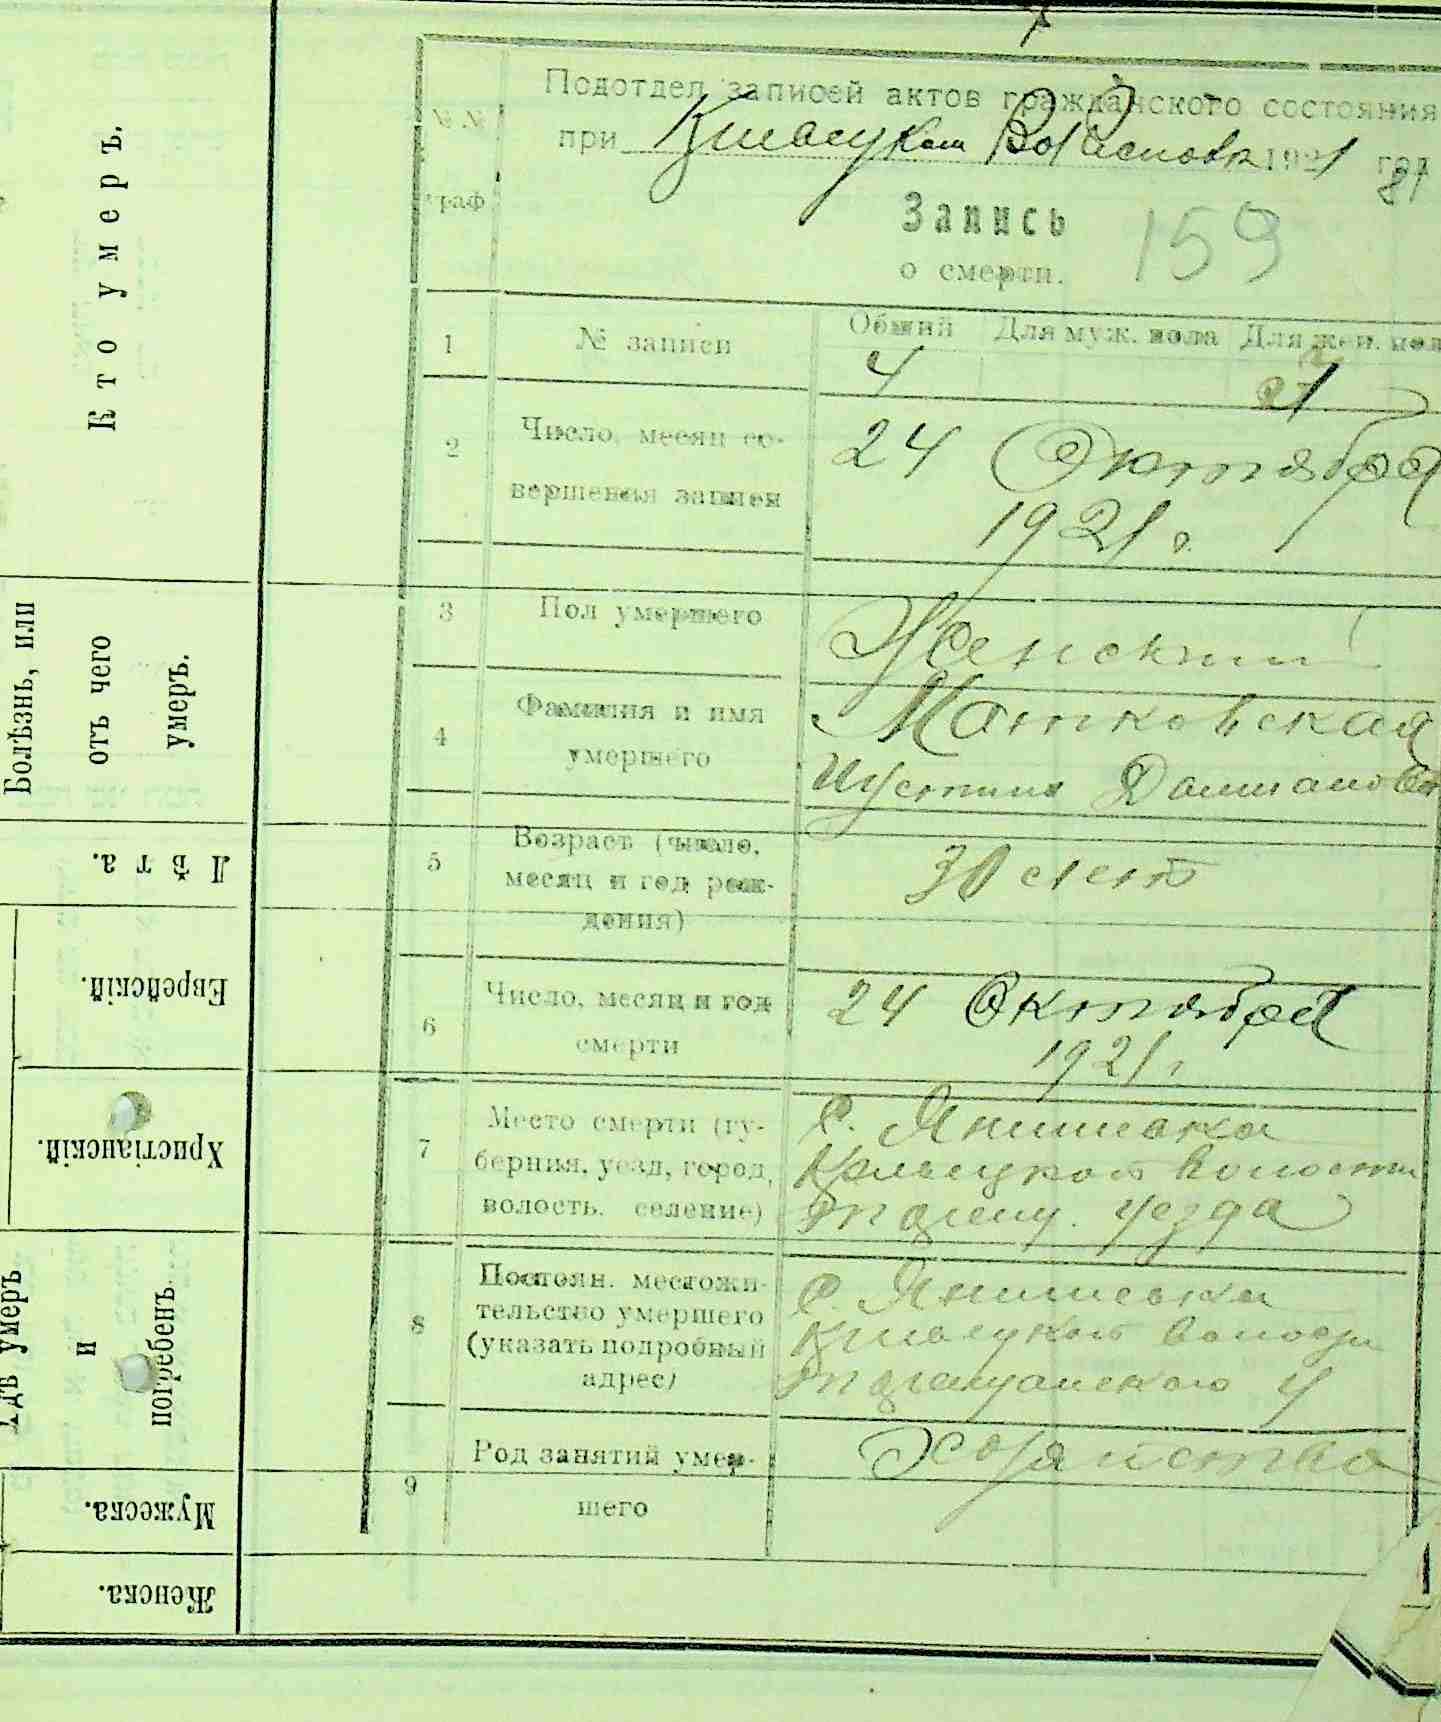 Кто умеръ.
Болѣзнь, или
отъ чего
умеръ.
Лѣта.
Еврейскій.
Христіанскій.
Гдѣ умеръ
и
погребенъ
Мужеска.
Женска.
№ №
граф
Подотдел записей актов гражданского состояния
при 1921 год
81
Запись
о смерти.
159
1
№ записи
Общий Для муж. пола Для жен. пол
4
1
2
Число, месяц со-
вершения записи
24 Октября
1921 г.
3
Пол умершего
Женский
4
Фамилия и имя
умершего
Матковская
Иустина Дамиановна
5
Возраст (число,
месяц и год рож-
дения)
30 лет
6
Число, месяц и год
смерти
24 Октября
1921 г.
7
Место смерти (гу-
берния, уезд, город,
волость, селение)
С. Янишевка
волости
уезда
8
Постоян. местожи-
тельство умершего
(указать подробный
адрес)
С. Янишевки
У
9
Род занятий умер-
шего
Хозяйство